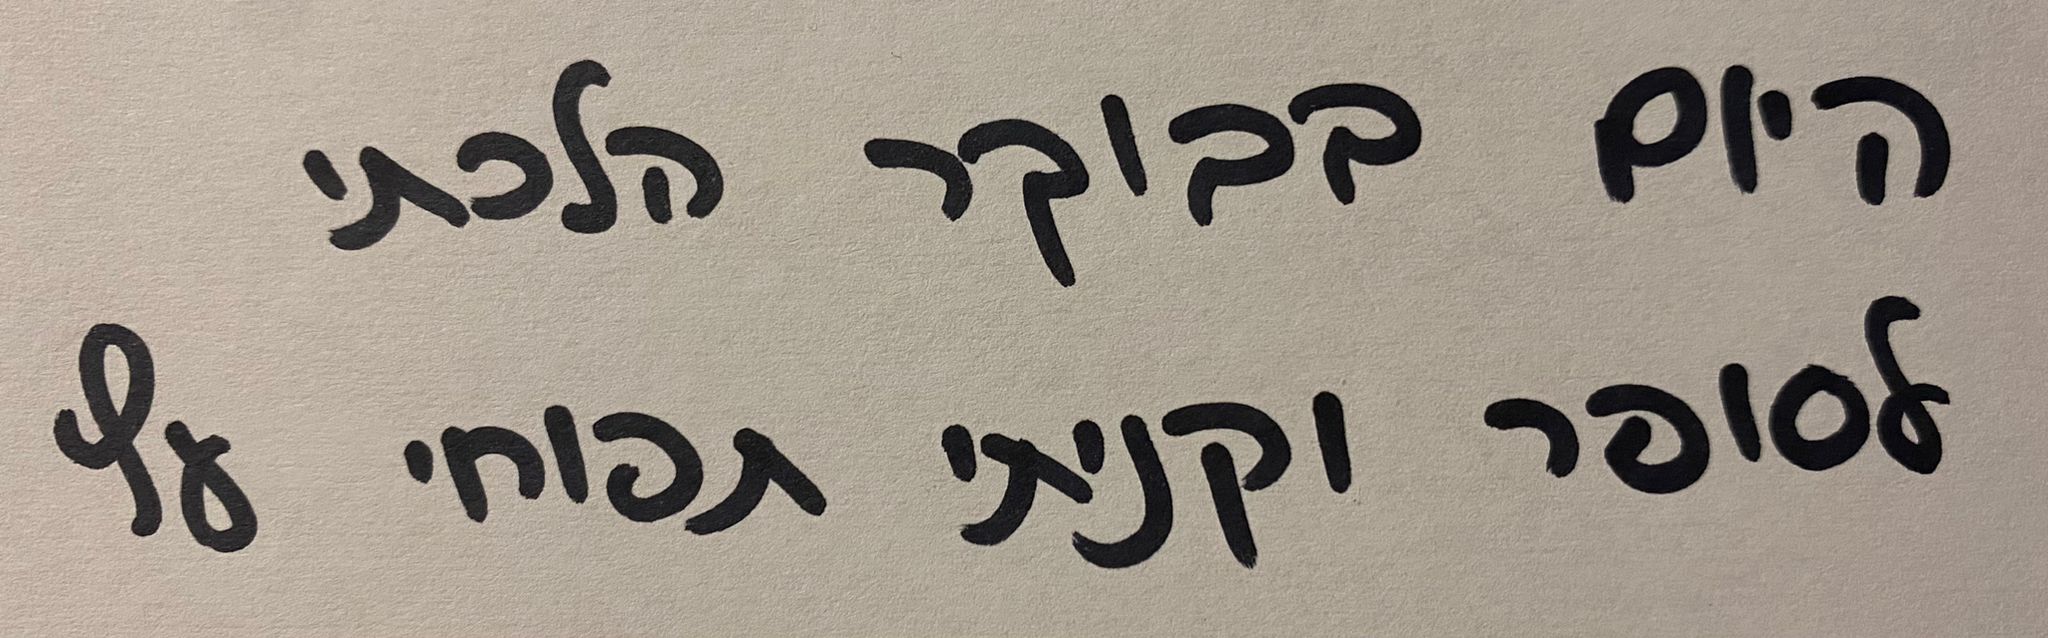 היום בבוקר הלכתי
לסופר וקניתי תפוחי עץ